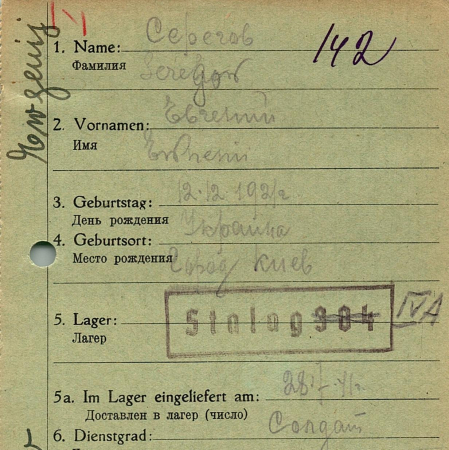 142
Ewgenij
1. Name: Серегов
Фамилия Seregow
2. Vornamen: Евгений
Имя
3. Geburtstag: 12.12.1921г
День рождения
4. Geburtsort: Украина
Место рождения город Киев
5. Lager: Stalag 304 IVA
Лагер
5a. Im Lager eingeliefert am: 28.7.41г
Доставлен в лагер (число)
6. Dienstgrad: Солдат